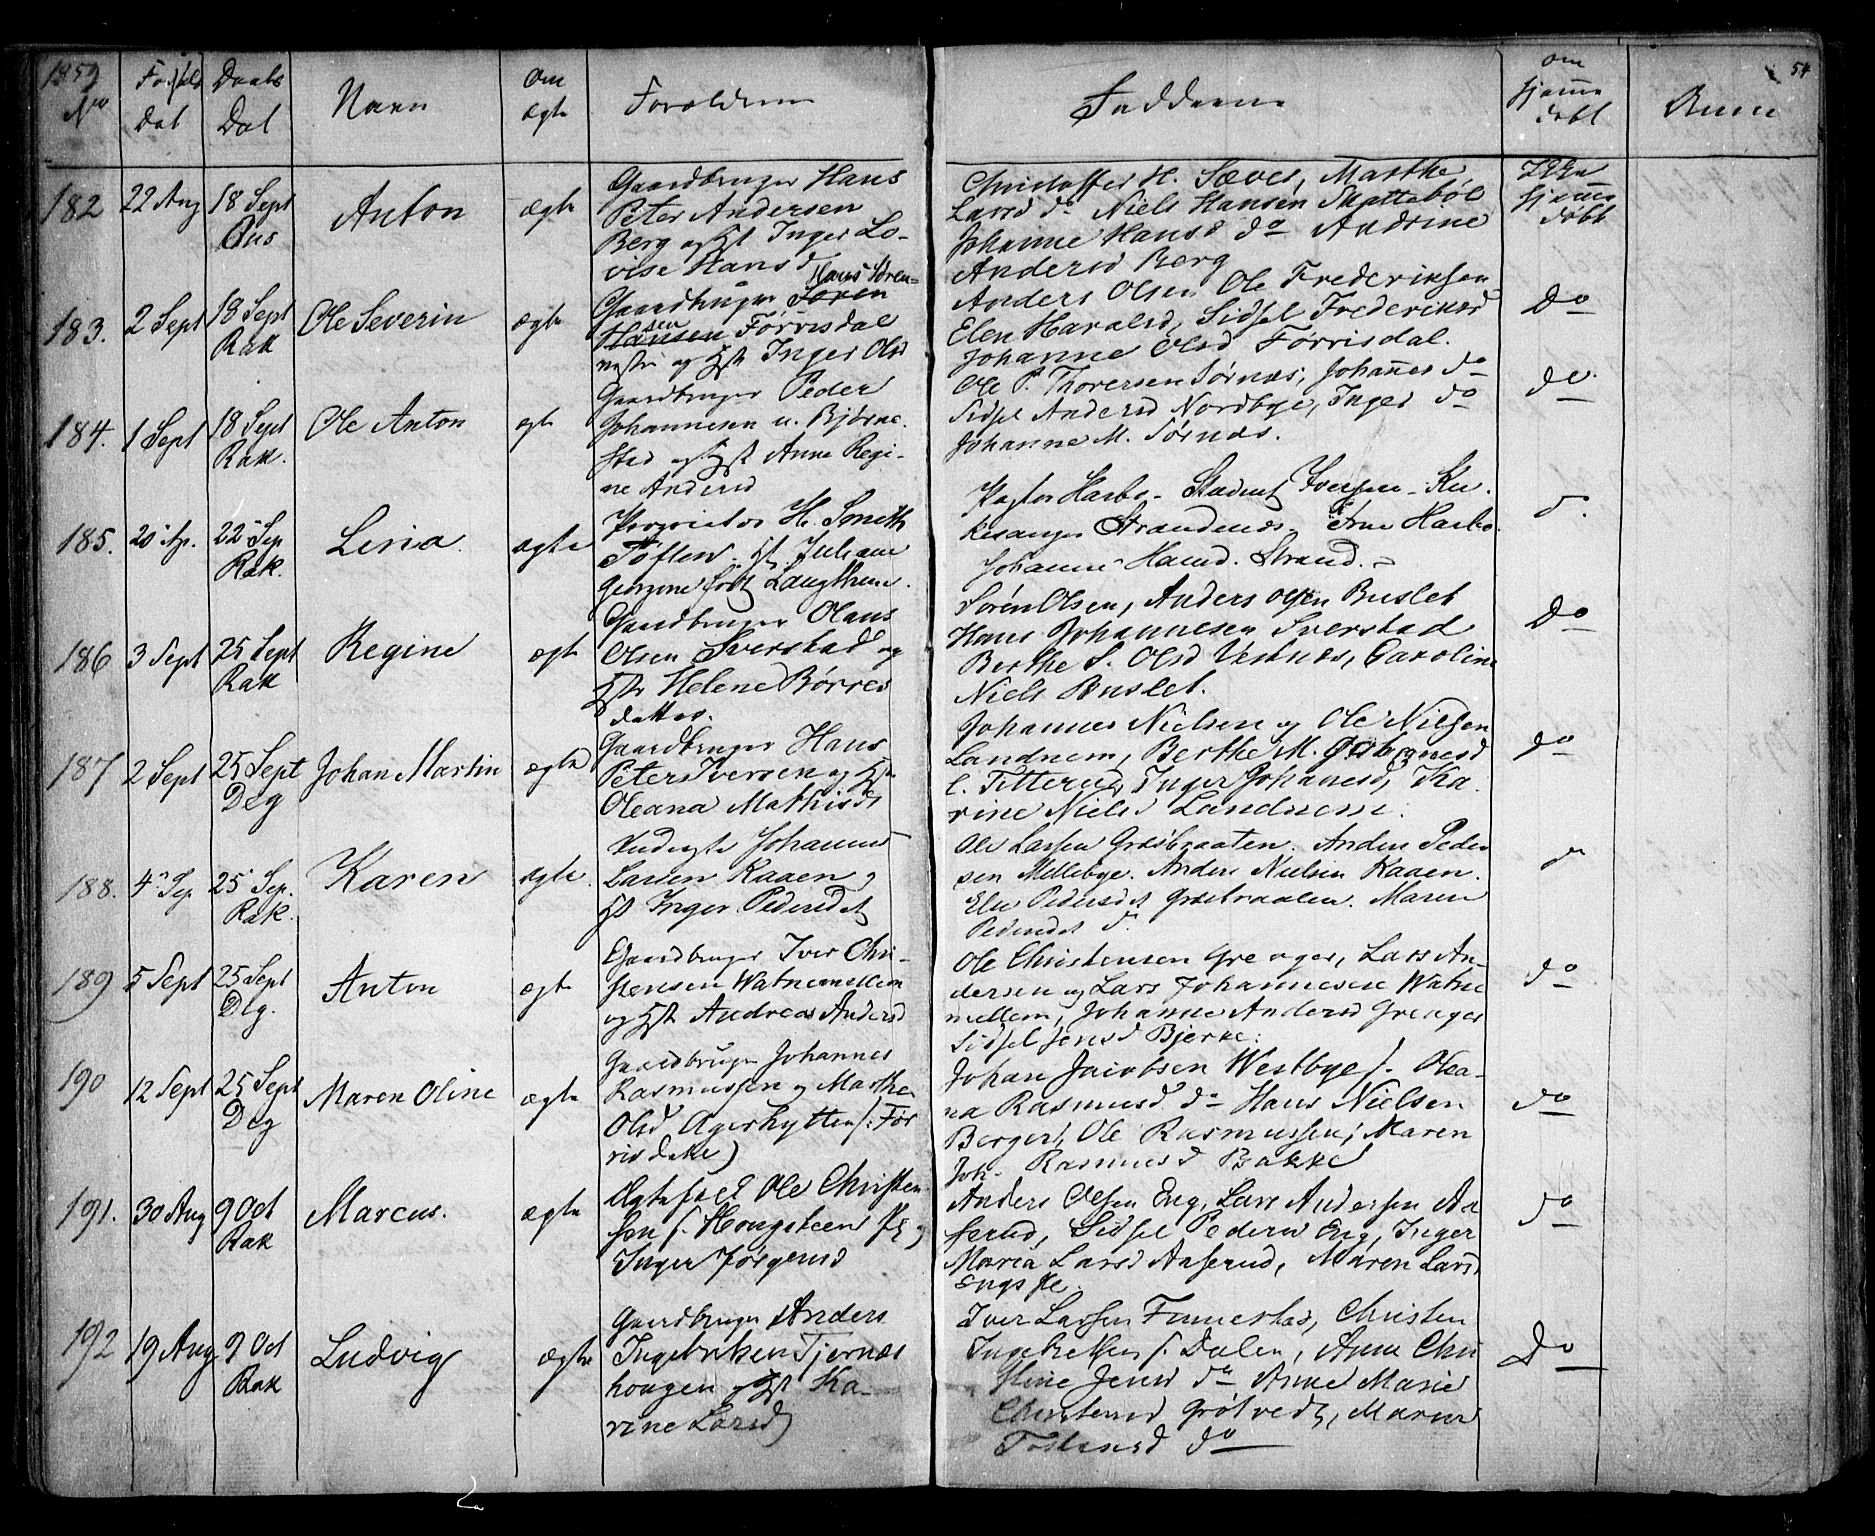 1859 Fødsels Daabs Om om 54
No Dat Dat Navn ægte Forældrene Fadderne hjemme døbt Anm
182 22 Aug 18 Sept Bus Anton ægte
Gaardbruger Hans
Peter Andersen
Berg og Hst Inger Lo-
vise Hansd
Christoffer H. Sæves, Marthe
Larsd do Niels Hansen Skattebøl
Johanne Hansd do Andrine
Andersd Berg
Ikke hjemme døbt
183. 2 Sept 18 Sept Rak Ole Severin ægte
Hans Søren-
Gaardbruger Søren
sen
Hansen Førrisdal
nestre og Hst Inger Olsd
Anders Olsen Ole Frederiksen
Elen Haralsd, Sidsel Frederiksd
Johanne Olsd Førrisdal.
Do
184. 1 Sept 18 Sept Rak. Ole Anton egte
Gaardbruger Peder
Johannesen u. Bjørne-
stad og Hst Anne Regi-
ne Andersd
Ole P. Thoresen Sørnæs, Johannes do
Sidsel Andersd Nordbye, Inger do
Johanne M. Sørnæs.
do
185. 22 Sep Rak. Lina ægte
Proprietær H. Smith
Toften. Hst Juliane
Georgine født Langthun.
Pastor Harbo - Student Iversen - Kir-
kesanger Strandenæs, Frue Harbo
Johanne Hansd. Strand.
d.
186 3 Sept 25 Sept Rak Regine ægte
Gaardbruger Olaus
Olsen Sverstad og
Hst Helene Børres
datter.
Søren Olsen, Anders Olsen Buslet
Hans Johannesen Sverstad
Berthe S. Olsd Vestnæs, Caroline
Niels Buslet.
Do
187 2 Sept 25 Sept Deg Johan Martin ægte
Gaardbruger Hans
Peter Iversen og Hst
Oleana Mathisd
Johannes Nielsen og Ole Nielsen
Landnem, Berthe M. Johannesd
l. Fitterud, Inger Johanesd, Ka-
rine Nielsd Landnem.
do
188. 4 Sep 25 Sep. Rak. Karen ægte.
Inderste Johannes
Larsen Kaaen og
Hst Inger Pedersdat
Ole Larsen Græsbraaten. Anders Peder-
sen Mellebye. Anders Nielsen Kaaen.
Else Pedersdat Græsbraaten. Maren
Pedersdat d.
do
189 5 Sept 25 Sept Deg. Anton ægte
Gaardbruger Iver Chri-
stensen Watnemellem
og Hst Andrea Andersd
Ole Christensen Greager, Lars An-
dersen og Lars Johannesen Watne
mellem, Johanne Andersd Greager
Sidsel Jensd Bjerke.
do
190 12 Sept 25 Sept Deg Maren Oline ægte
Gaardbruger Johannes
Rasmussen og Marthe
Olsd Agerhytten (: Før
risdale)
Johan Jacobsen Westbye /. Olea-
na Rasmusd do Hans Nielsen
Berger, Ole Rasmussen, Maren
Joh- Rasmusd Bakke
do
191. 30 Aug 9 Oct Rak Marcus. ægte
Ægtefolk Ole Christen-
sen /. Hougsteen og
Inger Jørgensd
Anders Olsen Eng, Lars Andersen Aa
serud, Sidsel Pedersd Eng, Inger
Maria Larsd Aaserud, Maren Larsd
Engs
do
192 19 Aug 9 Oct Rak Ludvig ægte
Gaardbruger Anders
Ingebriksen Tjernæs
hougen og Hst Ka-
rine Larsd
Iver Larsen Finnestad, Christen
Ingebretsen /. Dalen, Anne Chri
stine Jensd do Anne Marie
Christensd Grøtvedt, Maren
Torstensd do
Do